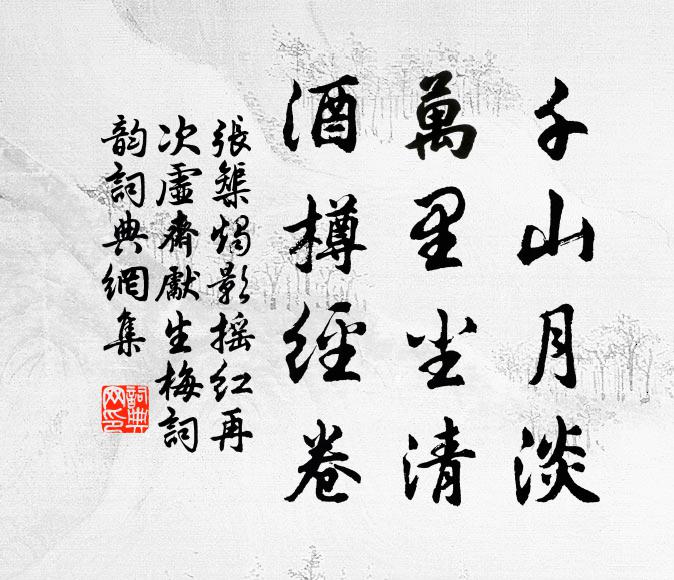 千山月淡
萬里尘清
酒樽經卷
張榘燭影摇红再
次虛齋獻生梅詞
韵詞典網集
詞典
网印